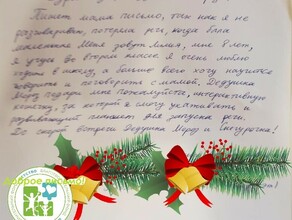 Пишет мама письмо, так как я не
разговариваю, потеряла речь, когда была
маленькая. Меня зовут Лилия, мне 8 лет,
я учусь во втором классе. Я очень люблю
ходить в школу, а больше всего хочу научиться
говорить и поговорить с мамой. Дедушка
Мороз подари мне пожалуйста, интерактивную
кошечку, за которой я смогу ухаживать и
развивающий планшет для запуска речи.
До скорой встречи Дедушка Мороз и Снегурочка!
Доброе письмо!